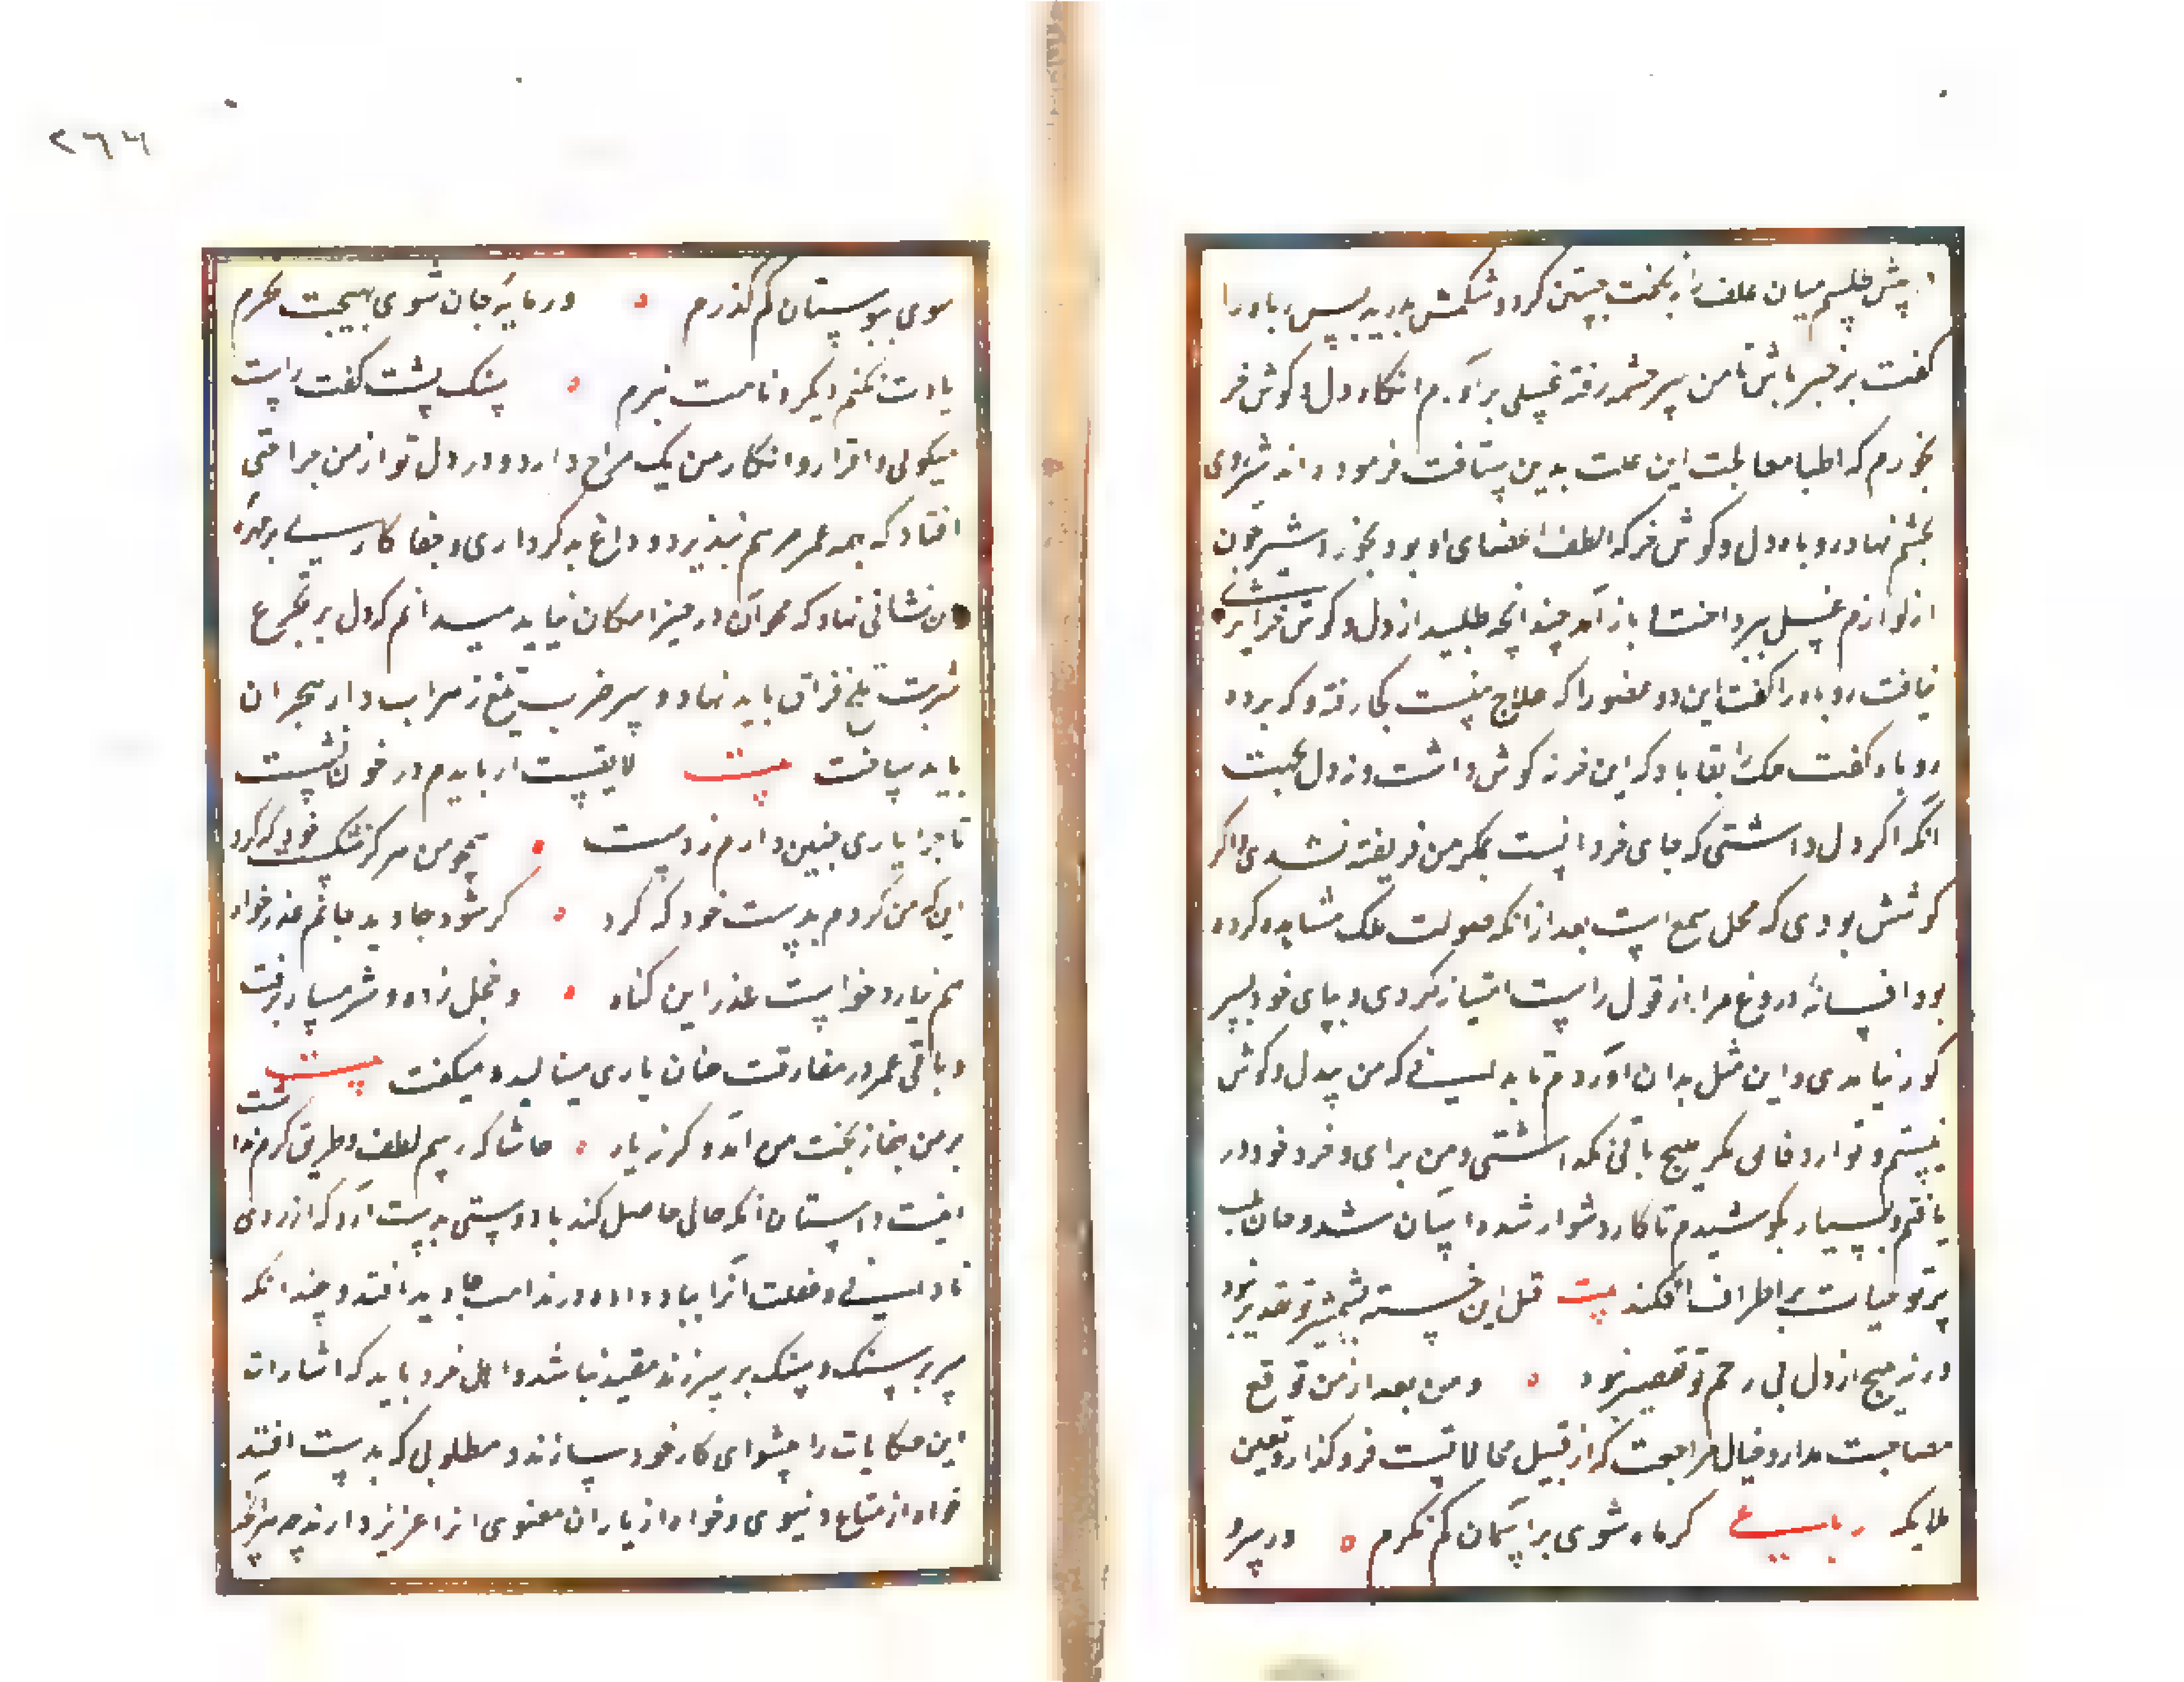 پیش طلسم میان علف را بگفت جستن کرد و شکمش بدرید پس روباه را
گفت برخبر باش تا من بسر چشمه رفته غسلی برآرم انکاه دل و کوش خر
بخورم که اطبا معالجت این علت بدین ستافت فرموده اند شیر روی
بچشم نهاد روباه دل و کوش خر که الطف اعضای او بود بخورد شیر چون
از لوازم غسل بپرداخت باز آمد چندانچه طلبید از دل و کوش خر اثری
نیافت روباه را کفت این دو عضو را که علاج منست کجا رفته و که برده
روباه کفت ملک را بقا باد که این خر نه کوش داشت و نه دل بجهت
انکه اکر دل داشتی که جای خرد انست بمکر من فریفته نشدی و اکر
کوشش بودی که محل سمع است بعد از انکه صولت ملک مشاهده کرده
بود افسانۀ دروغ مرا از قول راست امتیاز کردی و بپای خود بسر
کور نیامدی و این مثل بدان آوردم تا بدانی که من بیدل و کوش
نیستم و تو از دقایق مکر هیچ باقی نکذاشتی و من برای و خرد خود در
یافتم و بسیار بکوشیدم تا کار دشوار شده اسان شد و جان بلب
پرتو حیات بر اطراف افکند بیت قتل این خسته بشمشیر تو تقدیر نبود
ورنه هیچ از دل بی رحم تو تقصیر نبود و من بعد از من توقع
مصاحبت مدار و خیال مراجعت که از قبیل محالاتست فرو کذار و یقین
بدانکه رباعی کر ماه شوی بر اسمان کم نکرم در سرو
۲۶۶
شوی ببوستان کم کذرم ور مایۀ جان شوی بهیچت نخرم
یادت نکنم دیکر و نامت نبرم سنک پشت کفت راست
میکوئی و اقرار و انکار من یک مزاج دارد و در دل تو از من جراحتی
افتاد که همه عمر مرهم نپذیرد و داغ بدکرداری و جفاکاری بر چهره
من نشانی نهاد که محو آن در حیز امکان نیاید میدانم که دل بر تجرع
شربت تلخ فراق باید نهاد و سپر ضرب تیغ زهراب دار هجران
باید ساخت بیت لایقست ار بایدم در خون نشست
تا چرا یاری چنین دادم ز دست همچو من هرکز ستم بر خود که کرد
این که من کردم بدست خود که کرد کر شود جاوید جانم عذرخواه
هم نیارد خواست عذر این کناه و خجل زده و شرمسار برفت
و باقی عمر در مفارقت چنان یاری مینالید و میکفت بیت
بر من جفا ز بخت من آمد و کر نه یار حاشا که رسم لطف و طریق کرم نداشت
اینست داستان انکه مالی حاصل کند یا دوستی بدست آرد که از روی
نادانی و غفلت آنرا بباد داده در ندامت جاوید افتد و چندانکه
سر بر سنک و سنک بر سر زند مفید نباشد و اهل خرد باید که اشارات
این حکایات را پیشوای کار خود سازند و مطلوبی که بدست افتد
خواه از متاع دنیوی و خواه از یاران معنوی انرا عزیز دارند چه هر